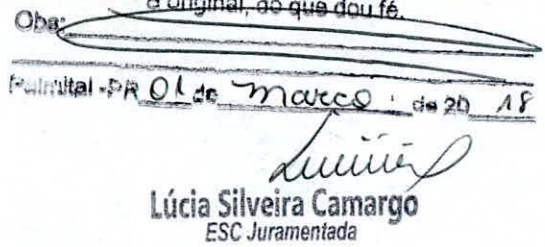 o original, do que dou fé.
Obs:
Palmital - PR 01 de março de 20 18
Lúcia Silveira Camargo
ESC Juramentada